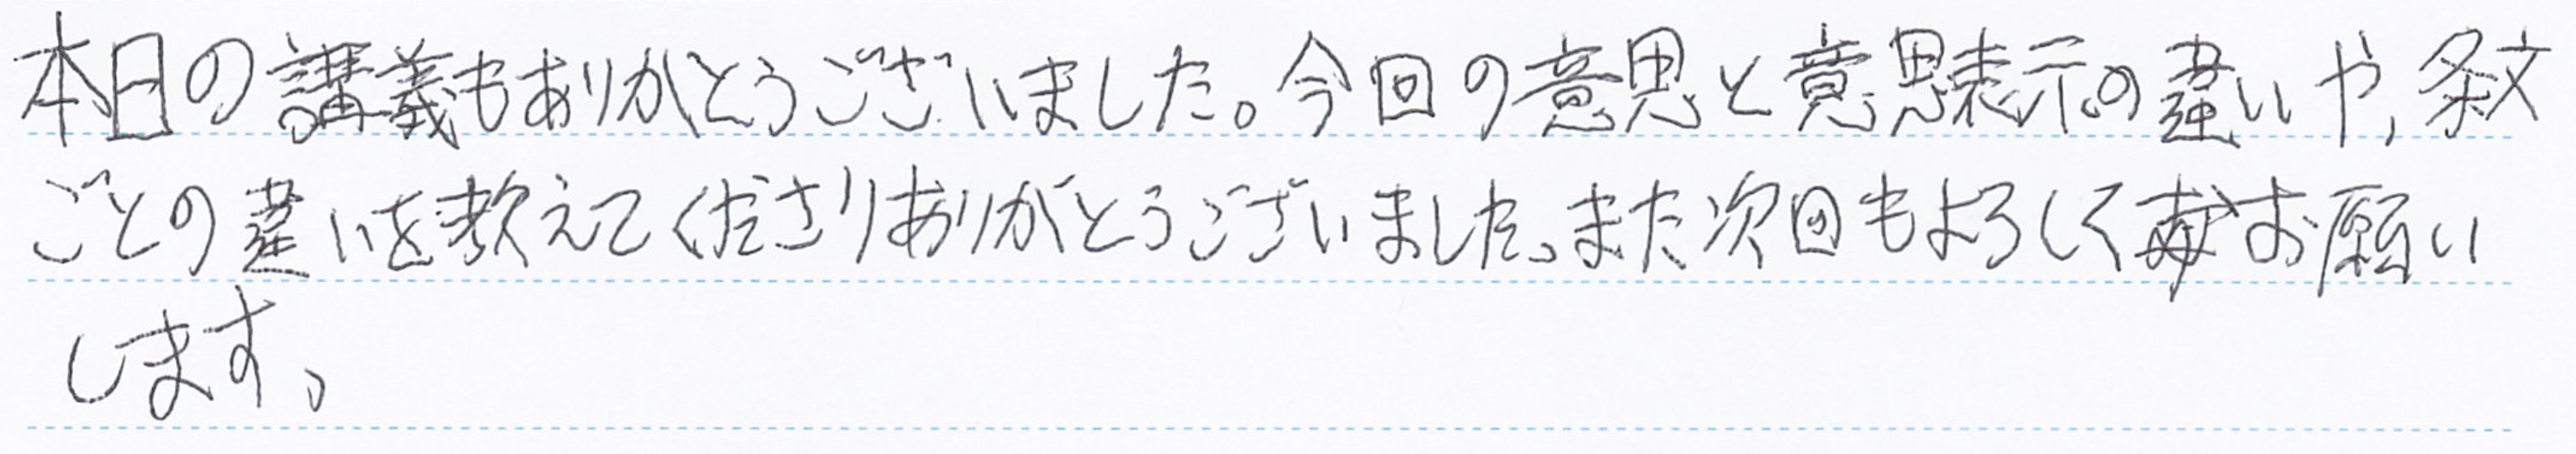 本日の講義もありがとうございました。今回の意思と意思表示の違いや,条文
ごとの違いを教えてくださりありがとうございました。また次回もよろしくお願い
します。